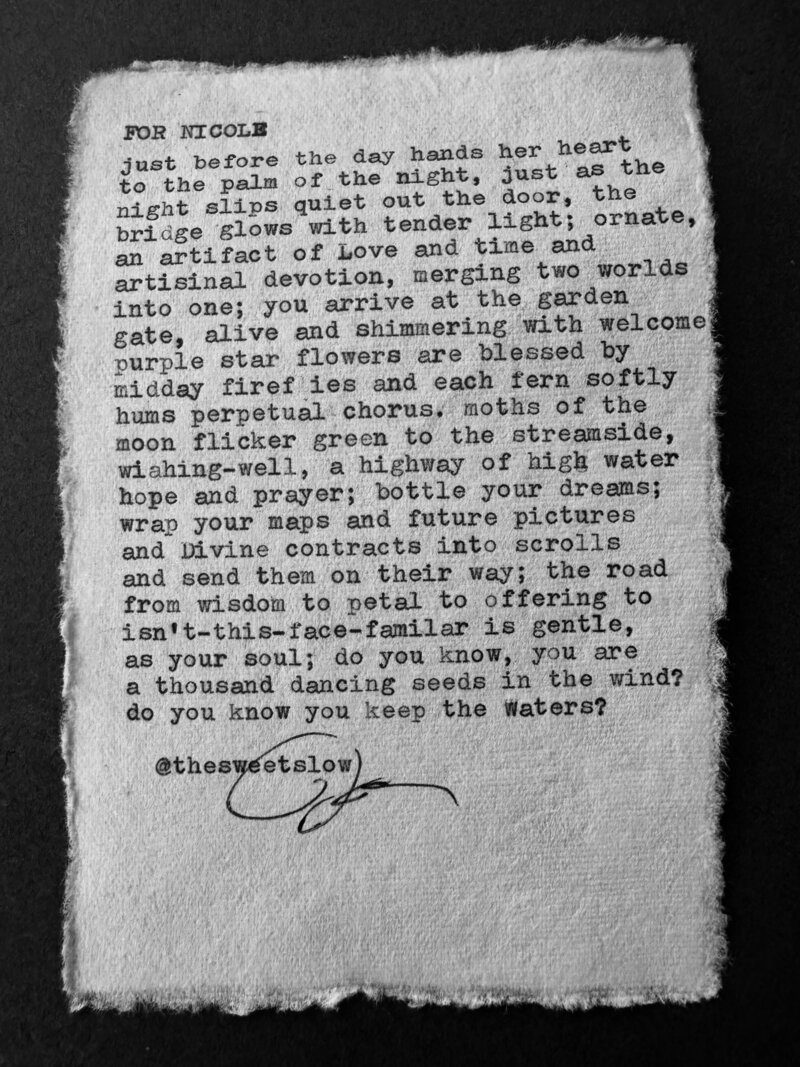 FOR NICOLE
just before the day hands her heart
to the palm of the night, just as the
night slips quiet out the door, the
bridge glows with tender light; ornate,
an artifact of Love and time and
artisinal devotion, merging two worlds
into one; you arrive at the garden
gate, alive and shimmering with welcome
purple star flowers are blessed by
midday firef ies and each fern softly
hums perpetual chorus. moths of the
moon flicker green to the streamside,
wiahing-well, a highway of high water
hope and prayer; bottle your dreams;
wrap your maps and future pictures
and Divine contracts into scrolls
and send them on their way; the road
from wisdom to petal to offering to
isn't-this-face-familar is gentle,
as your soul; do you know, you are
a thousand dancing seeds in the wind?
do you know you keep the Waters?
@thesweetslow